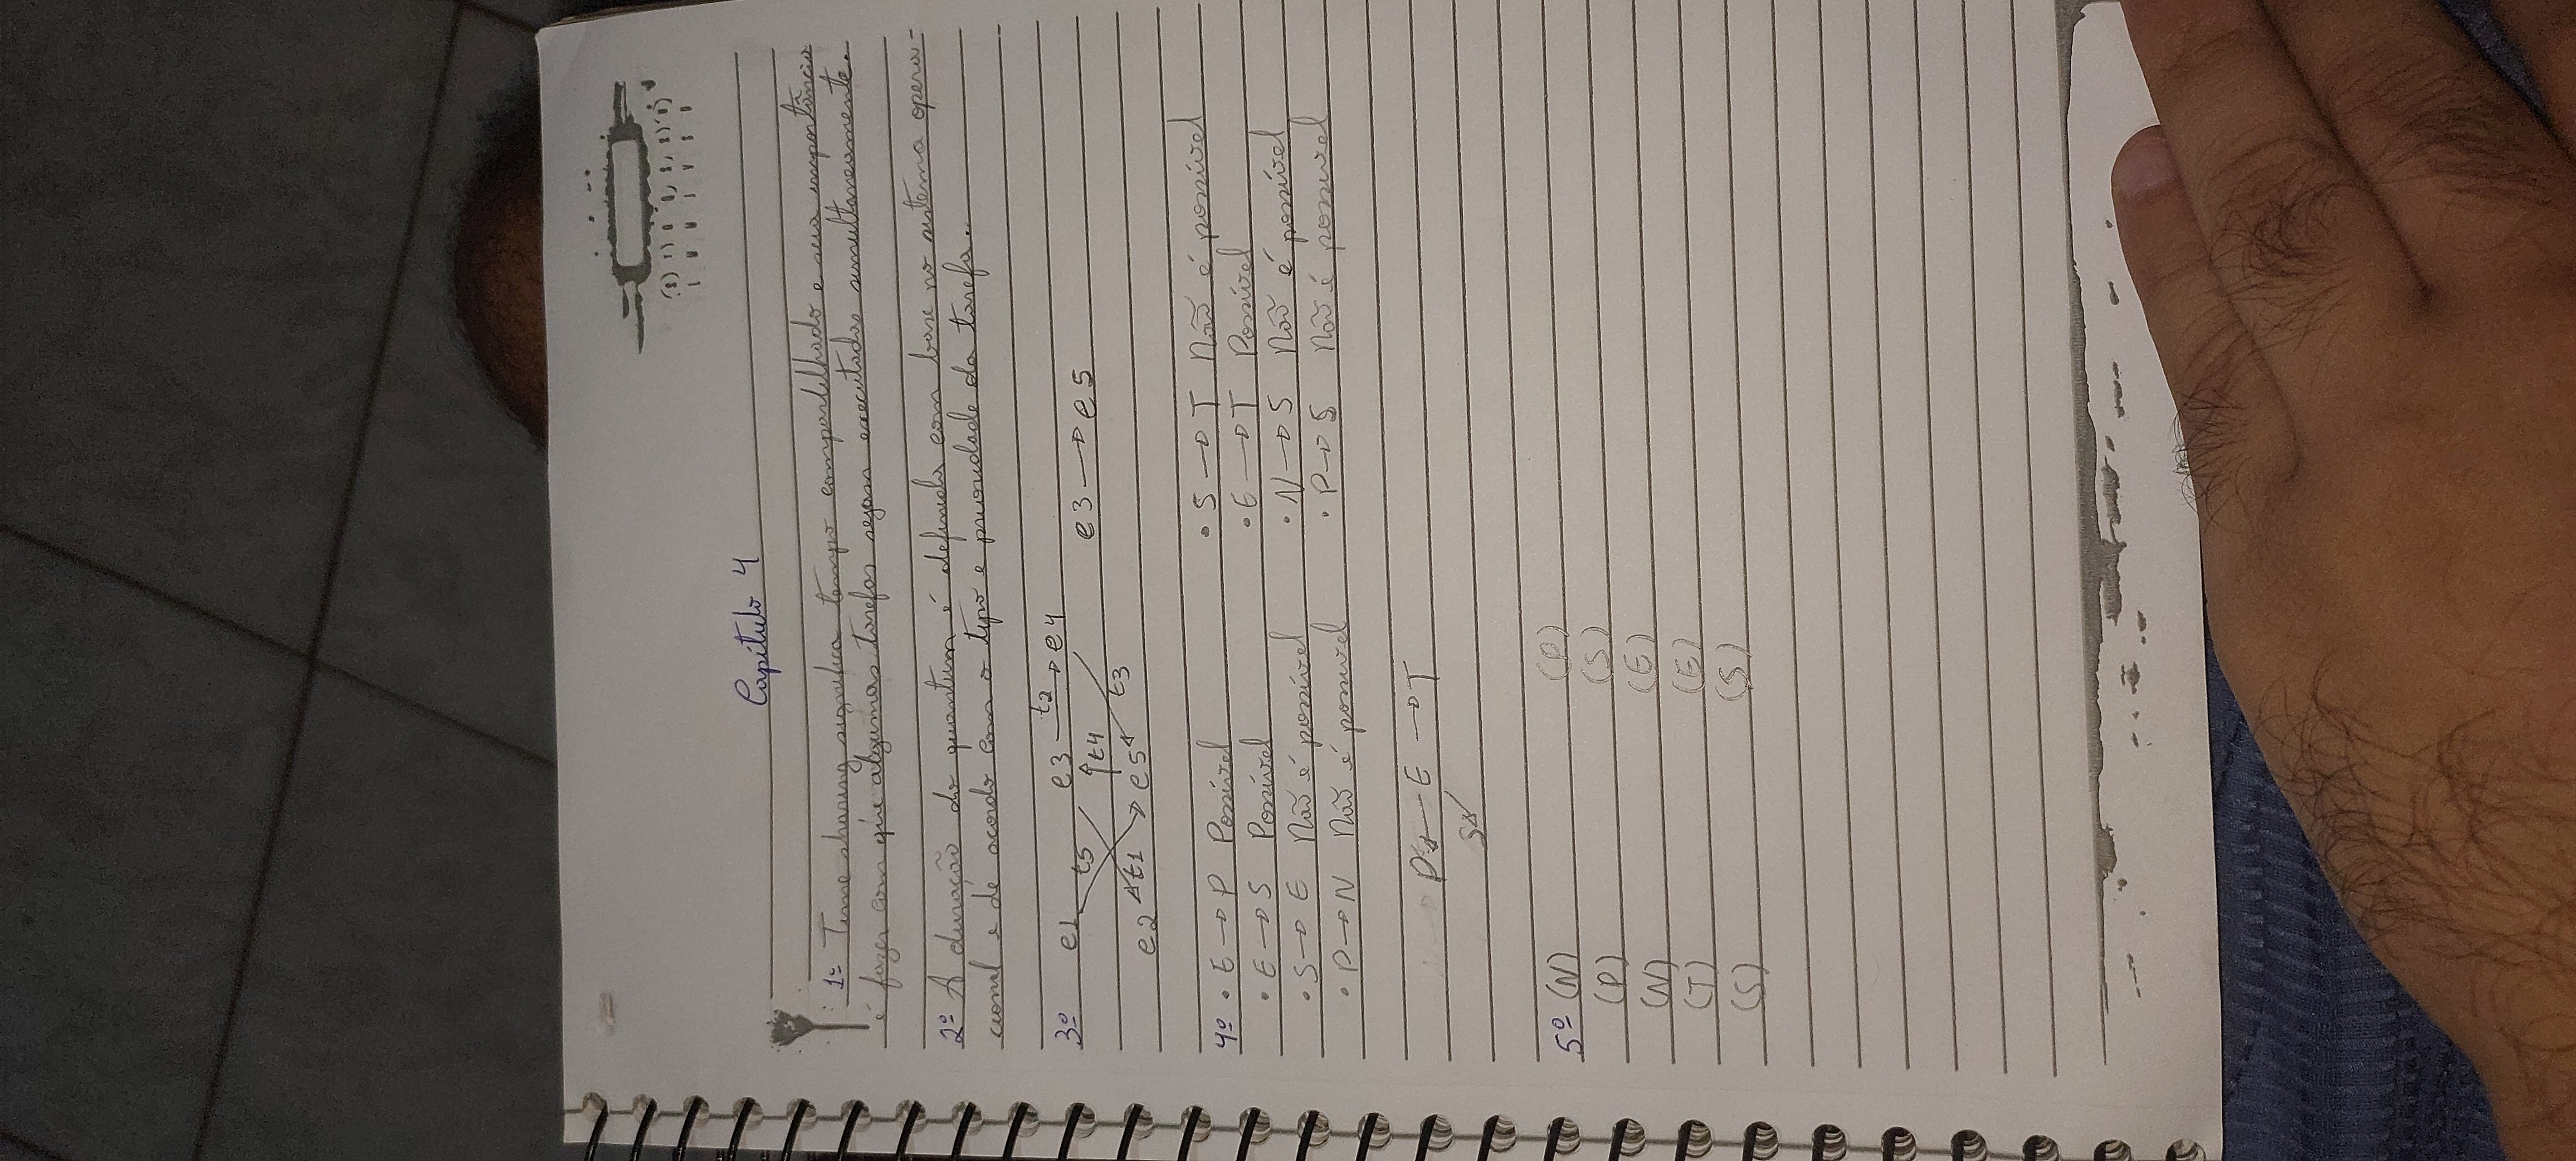 Capítulo 4
1º Time sharing significa tempo compartilhado e sua importância
é fazer com que algumas tarefas sejam executadas simultaneamente.
2º A duração do quantum é definida com base no sistema opera-
cional e de acordo com o tipo e prioridade da tarefa.
3º e1 t5 e3 t2 → e4
t4 t3 e3 → e5
e2 t1 e5
4º • E → P Possível • S → T Não é possível
• E → S Possível • E → T Possível
• S → E Não é possível • N → S Não é possível
• P → N Não é possível • P → S Não é possível
P ← E → T
S
5º (N) (P)
(P) (S)
(N) (E)
(T) (E)
(S) (S)